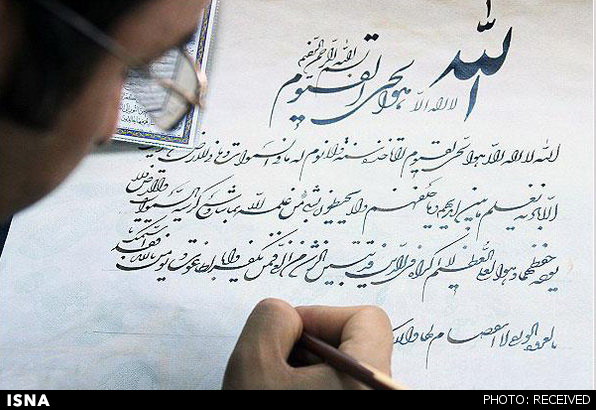 الله
بسم الله الرحمن الرحیم
لا اله الا هو الحی القیوم
الله لا اله الا هو الحی القیوم لا تأخذه سنة ولا نوم له ما فی السموات وما فی الارض
الا باذنه یعلم ما بین ایدیهم وما خلفهم ولا یحیطون بشیء من علمه الا بما شاء وسع کرسیه السموات والارض ولا
یؤده حفظهما وهو العلی العظیم لا اکراه فی الدین قد تبین الرشد من الغی فمن یکفر بالطاغوت ویؤمن بالله فقد استمسک
بالعروة الوثقی لا انفصام لها والله
ISNA
PHOTO: RECEIVED